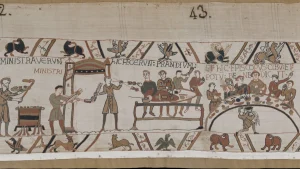 2. 43.
MINISTRAVERVNT
MINISTRI
HIC FECERVN: PRANDIVM:
ET HIC EPISCOPVS: CIBV: ET:
POTV: BENEDICIT